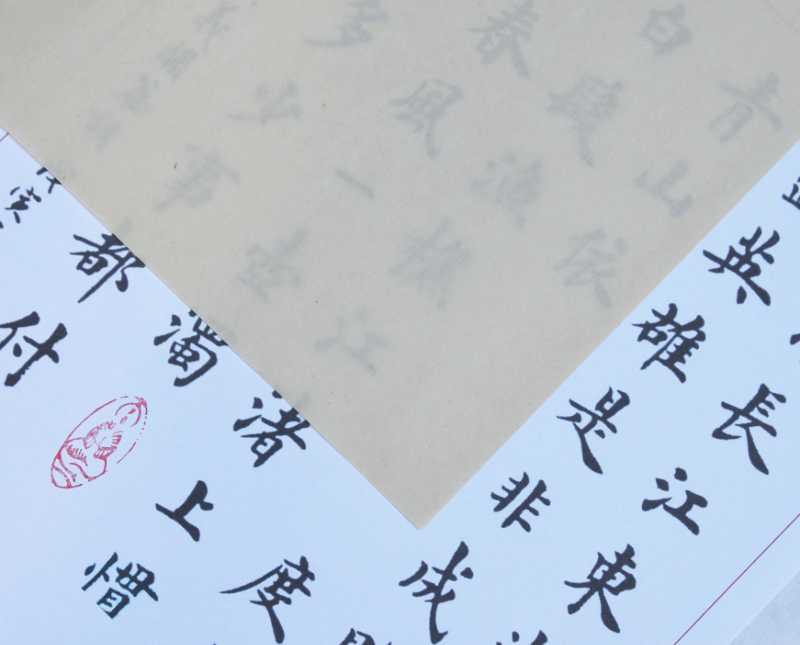 長江東
英雄是非成
青山依度
白髮漁樵江渚上慣
春風一壺濁
多少事都付
賞